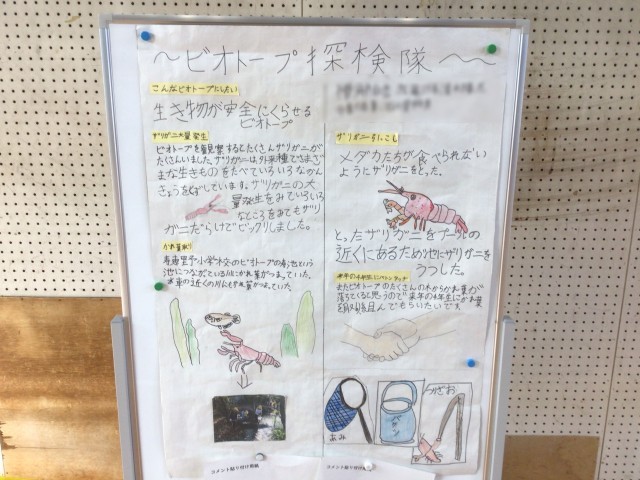 〜ビオトープ探検隊〜
こんなビオトープにしたい
生き物が安全にくらせる
ビオトープ
ザリガニ大量発生
ビオトープを観察するとたくさんザリガニが
たくさんいました。ザリガニは外来種でさまざ
まな生きものをたべていろいろなかん
きょうをこわしています。ザリガニの大
量発生をみているいろ
なところをみてもザリ
ガニだらけでビックリしました。
小学校のビオトープの
池につながている川にかれ葉がつまっていた。
ザリガニすくい
メダカたちが食べられない
ようにザリガニをとった。
とったザリガニをプールの
近くにあるため池にザリガニを
うつした。
来年の4年生にバトンタッチ
またビオトープのたくさんの木からかれ葉が
落ちてくると思うので来年の4年生にかれ葉
取りを
んでもらいたいです。
あみ
バケツ
つりざお
コメント貼り付け用紙
コメント貼り付け